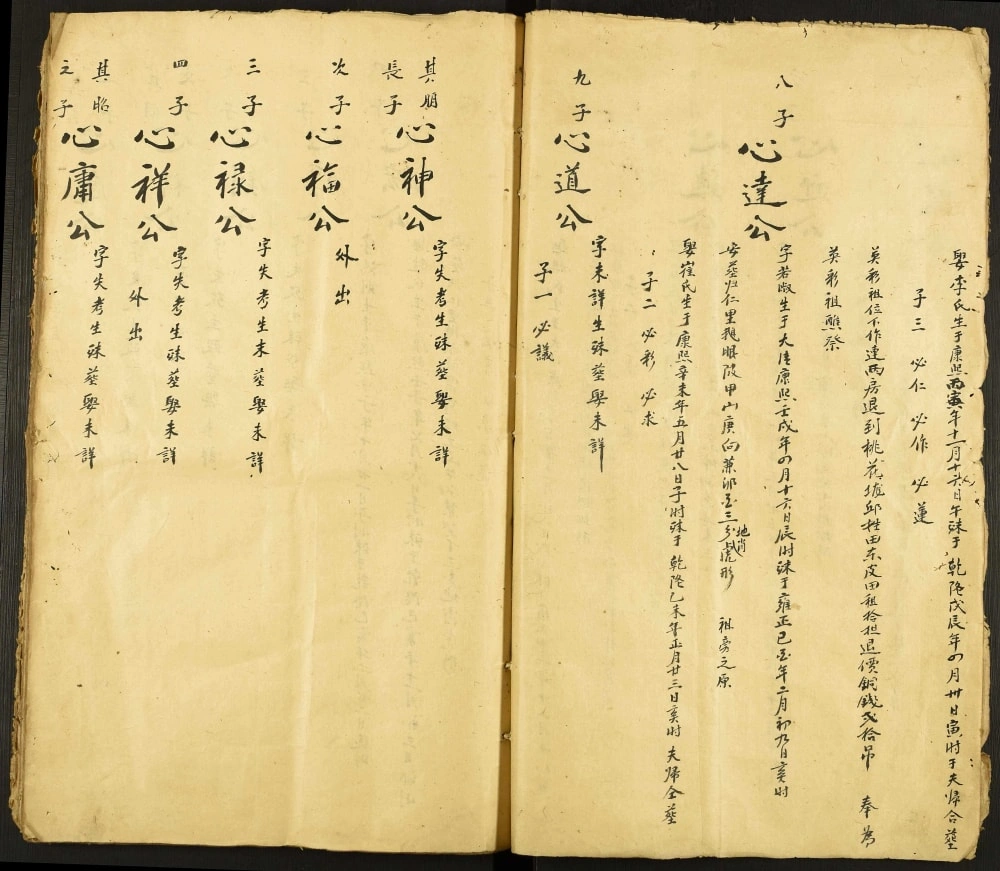 娶李氏生于康熙丙寅年十一月十六日午時殁于乾隆戊辰年四月卅日寅时于夫㷌合墓
子三 必仁 必作 必蓮
英彩祖位下作連両房退到桃花壠邱姓田東皮田租拾担退價銅錢弍拾吊 奉為
英彩祖醮祭
八子
心達公
字若殿生于大清康熙壬戌年四月十六日辰时殁于雍正己酉年二月初九日亥时
安塟归仁里鵝眼陂甲山庚向兼卯酉三分虎形 祖旁之原
地肖
娶崔氏生于康熙辛未年五月廿八日子时殁于乾隆乙未年正月廿三日亥时 夫婦仝塟
子二 必彩 必求
九子
心道公
字未詳生殁塟娶未詳
子一 必議
其明
長子
心神公
字失考生殁塟娶未詳
次子
心福公
外出
三子
心禄公
字失考生末塟娶未詳
四子
心祥公
字失考生殁塟娶未詳
外出
其昭
之子
心庸公
字失考生殁塟娶未詳